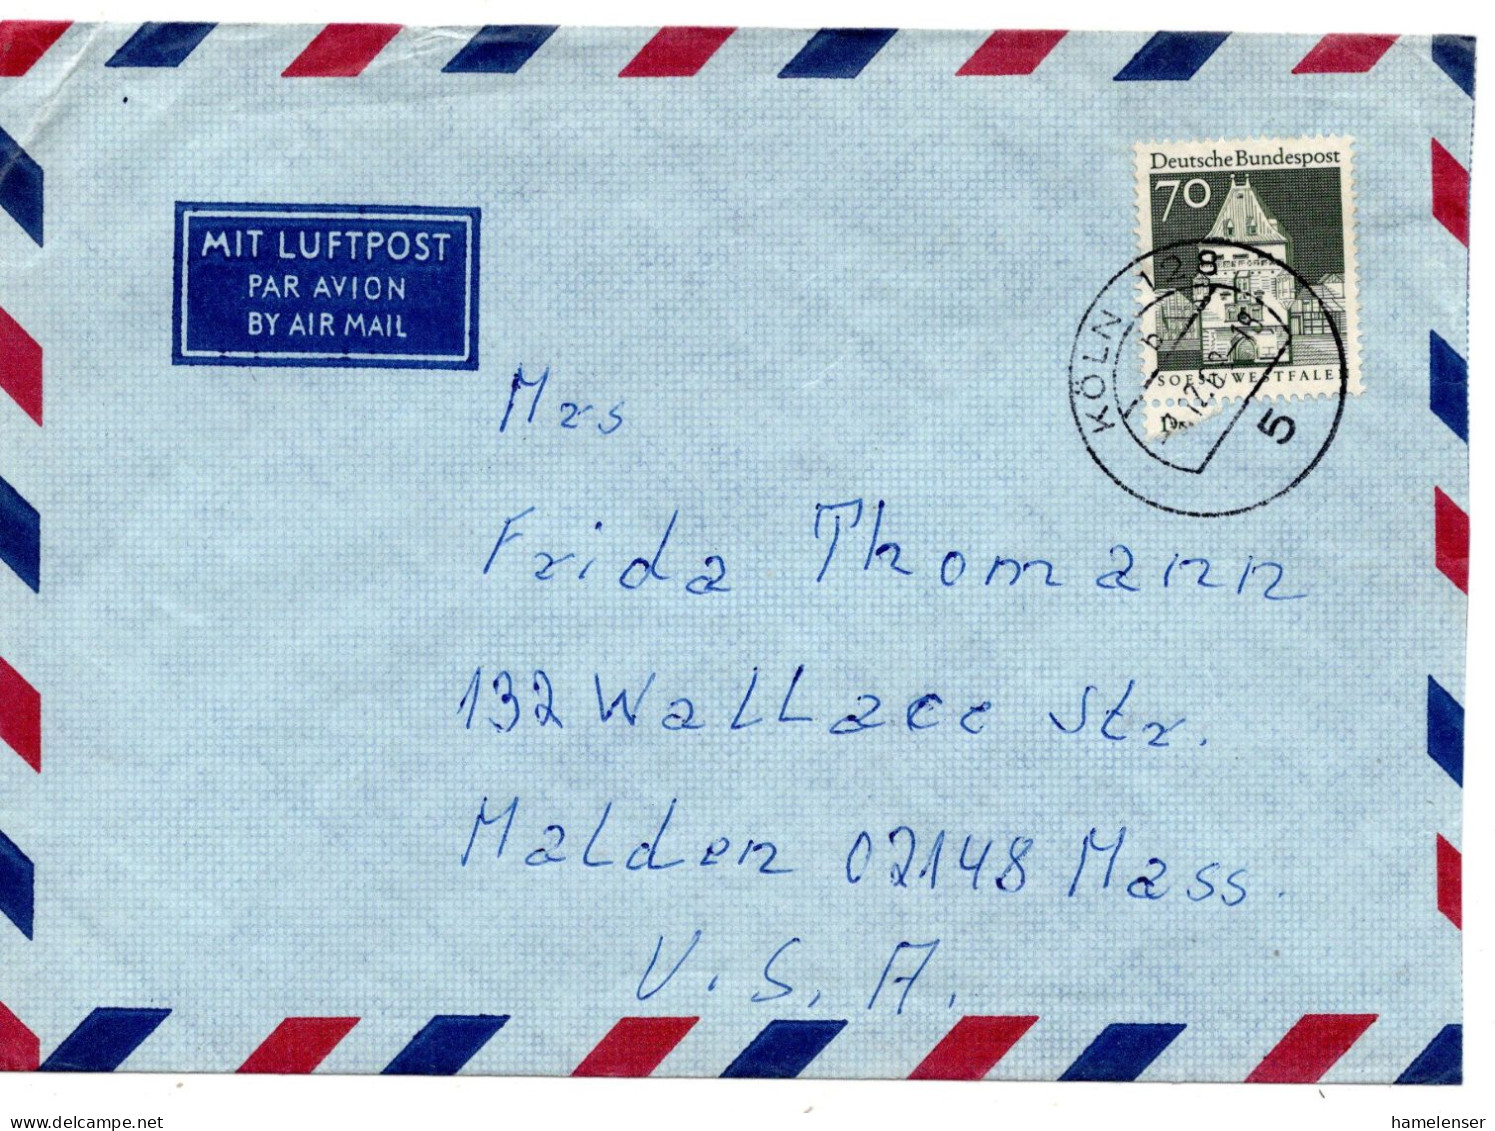 Deutsche Bundespost
70
SOEST/WESTFALEN
KÖLN 128
5
MIT LUFTPOST
PAR AVION
BY AIR MAIL
Mrs
Frida Thomann
132 Wallace Str.
Malden 02148 Mass.
U.S.A.
hamelenser